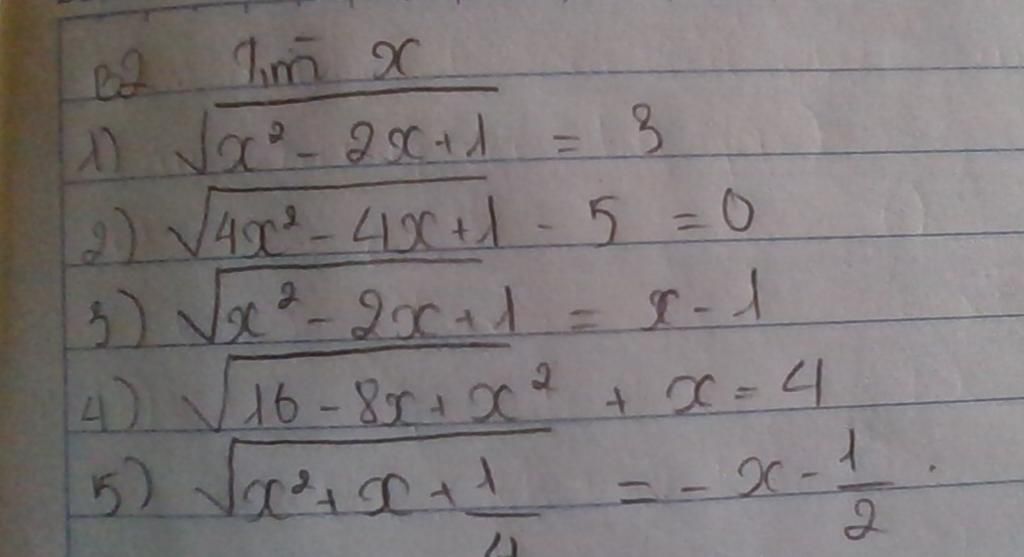 B2 Tìm x
1) √(x² - 2x + 1) = 3
2) √(4x² - 4x + 1) - 5 = 0
3) √(x² - 2x + 1) = x - 1
4) √(16 - 8x + x²) + x = 4
5) √(x² + x + 1/4) = - x - 1/2.